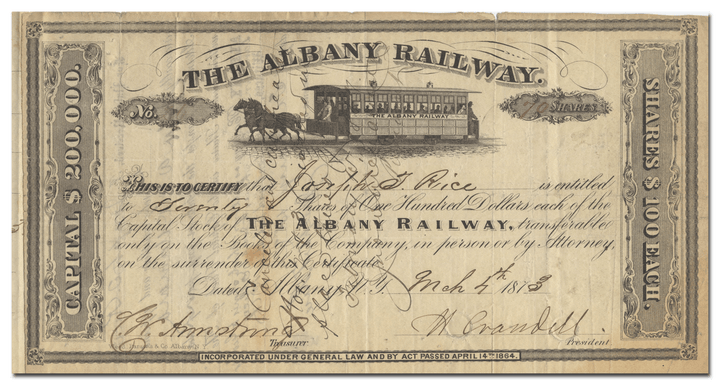 THE ALBANY RAILWAY.
CAPITAL $ 200,000.
No.
70 SHARES
SHARES $ 100 EACH.
THE ALBANY RAILWAY
THIS IS TO CERTIFY that Joseph T. Rice is entitled
to Seventy Shares of One Hundred Dollars each of the
Capital Stock of THE ALBANY RAILWAY, transferable
only on the Books of the Company, in person or by Attorney,
on the surrender of this Certificate.
Dated Albany N.Y. Mch 4th 1873
Armstrong
Treasurer.
W Crandell.
President.
& Co. Albany
INCORPORATED UNDER GENERAL LAW AND BY ACT PASSED APRIL 14TH 1864.